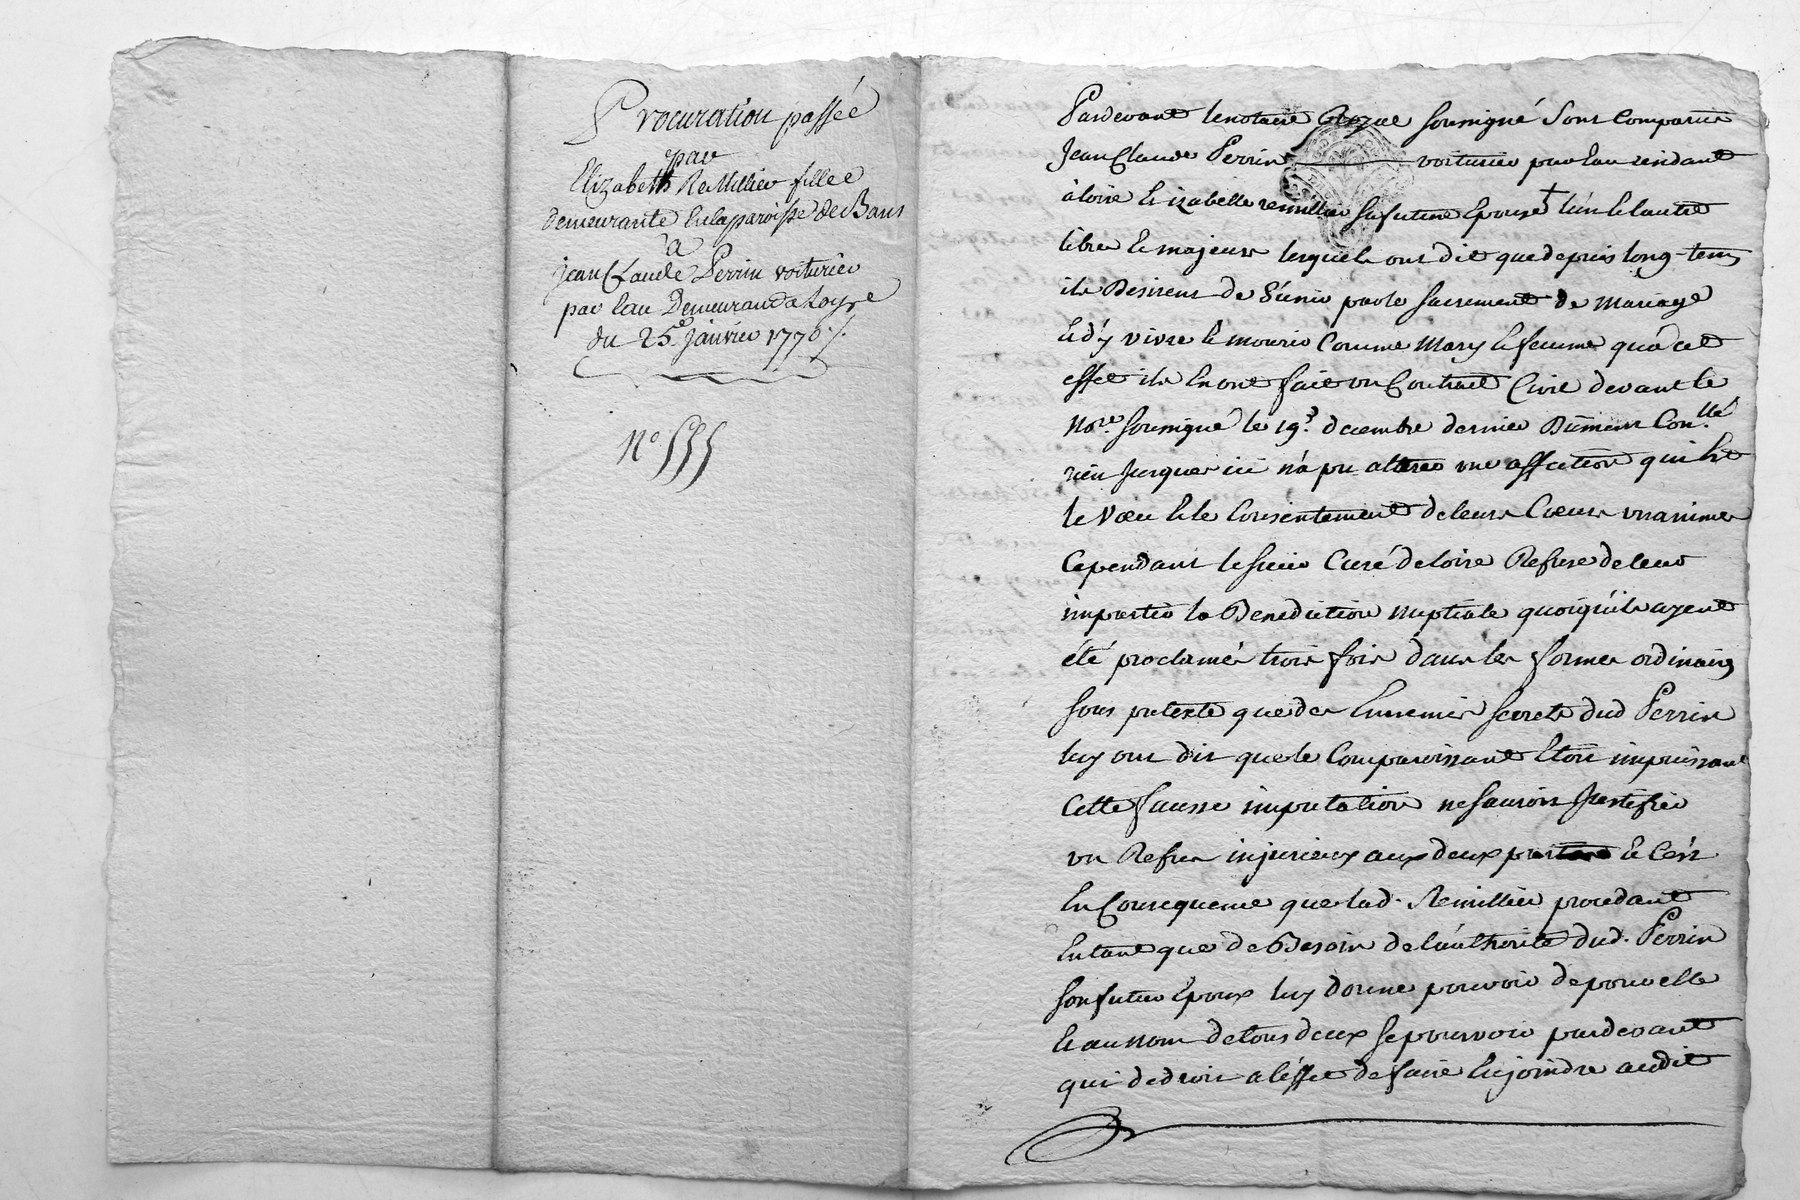 Procuration passée
par
Elizabeth Remillieu fillee
demeurante En la paroisse de Bans
à
jean Claude Perrin voiturier
par Eau Demeurand a Loyre
du 25e Janvier 1770 /.
N° 555
Pardevant le notaire Royal soussigné sont Comparus
Jean Claude Perrin voiturier par Eau residant
à loire & izabelle remillieu sa future Epouse † l'un & lautre
libre & majeurs lesquels ont dit que depuis long-tems
ils Desirent de S'unir par le sacrement de Mariage
& d'y vivre & mourir Comme Mary & femme qu'à cet
effet ils En ont fait un Contract Civil devant le
No.re soussigné le 19.e decembre dernier Dûment Con.llé
rien jusques ici n'a pu alterer une affection qui Est
le Vœu & le Consentement de leurs Cœurs unanimes
Cependant le sieur Curé de loire Refuse de leur
impartir la Benediction nuptiale quoiqu'ils ayent
été proclamés trois fois dans les formes ordinaires
sous pretexte que des Ennemis secrets dud Perrin
luy ont dit que le Comparoissant Etoit impuissant
Cette fausse imputation ne sauroit Justifier
un Refus injurieux aux deux & C'est
En Consequence que lad. Remillieu procedant
En tant que de Besoin de l'authorité dud. Perrin
son futur Epoux luy donne pouvoir de pour elle
& au nom de tous deux se pourvoir pardevant
qui de droit a l'effet de faire Enjoindre audit